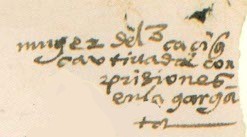 muger del caciq̃
cautiuada con
prisiones
en la gargã
ta